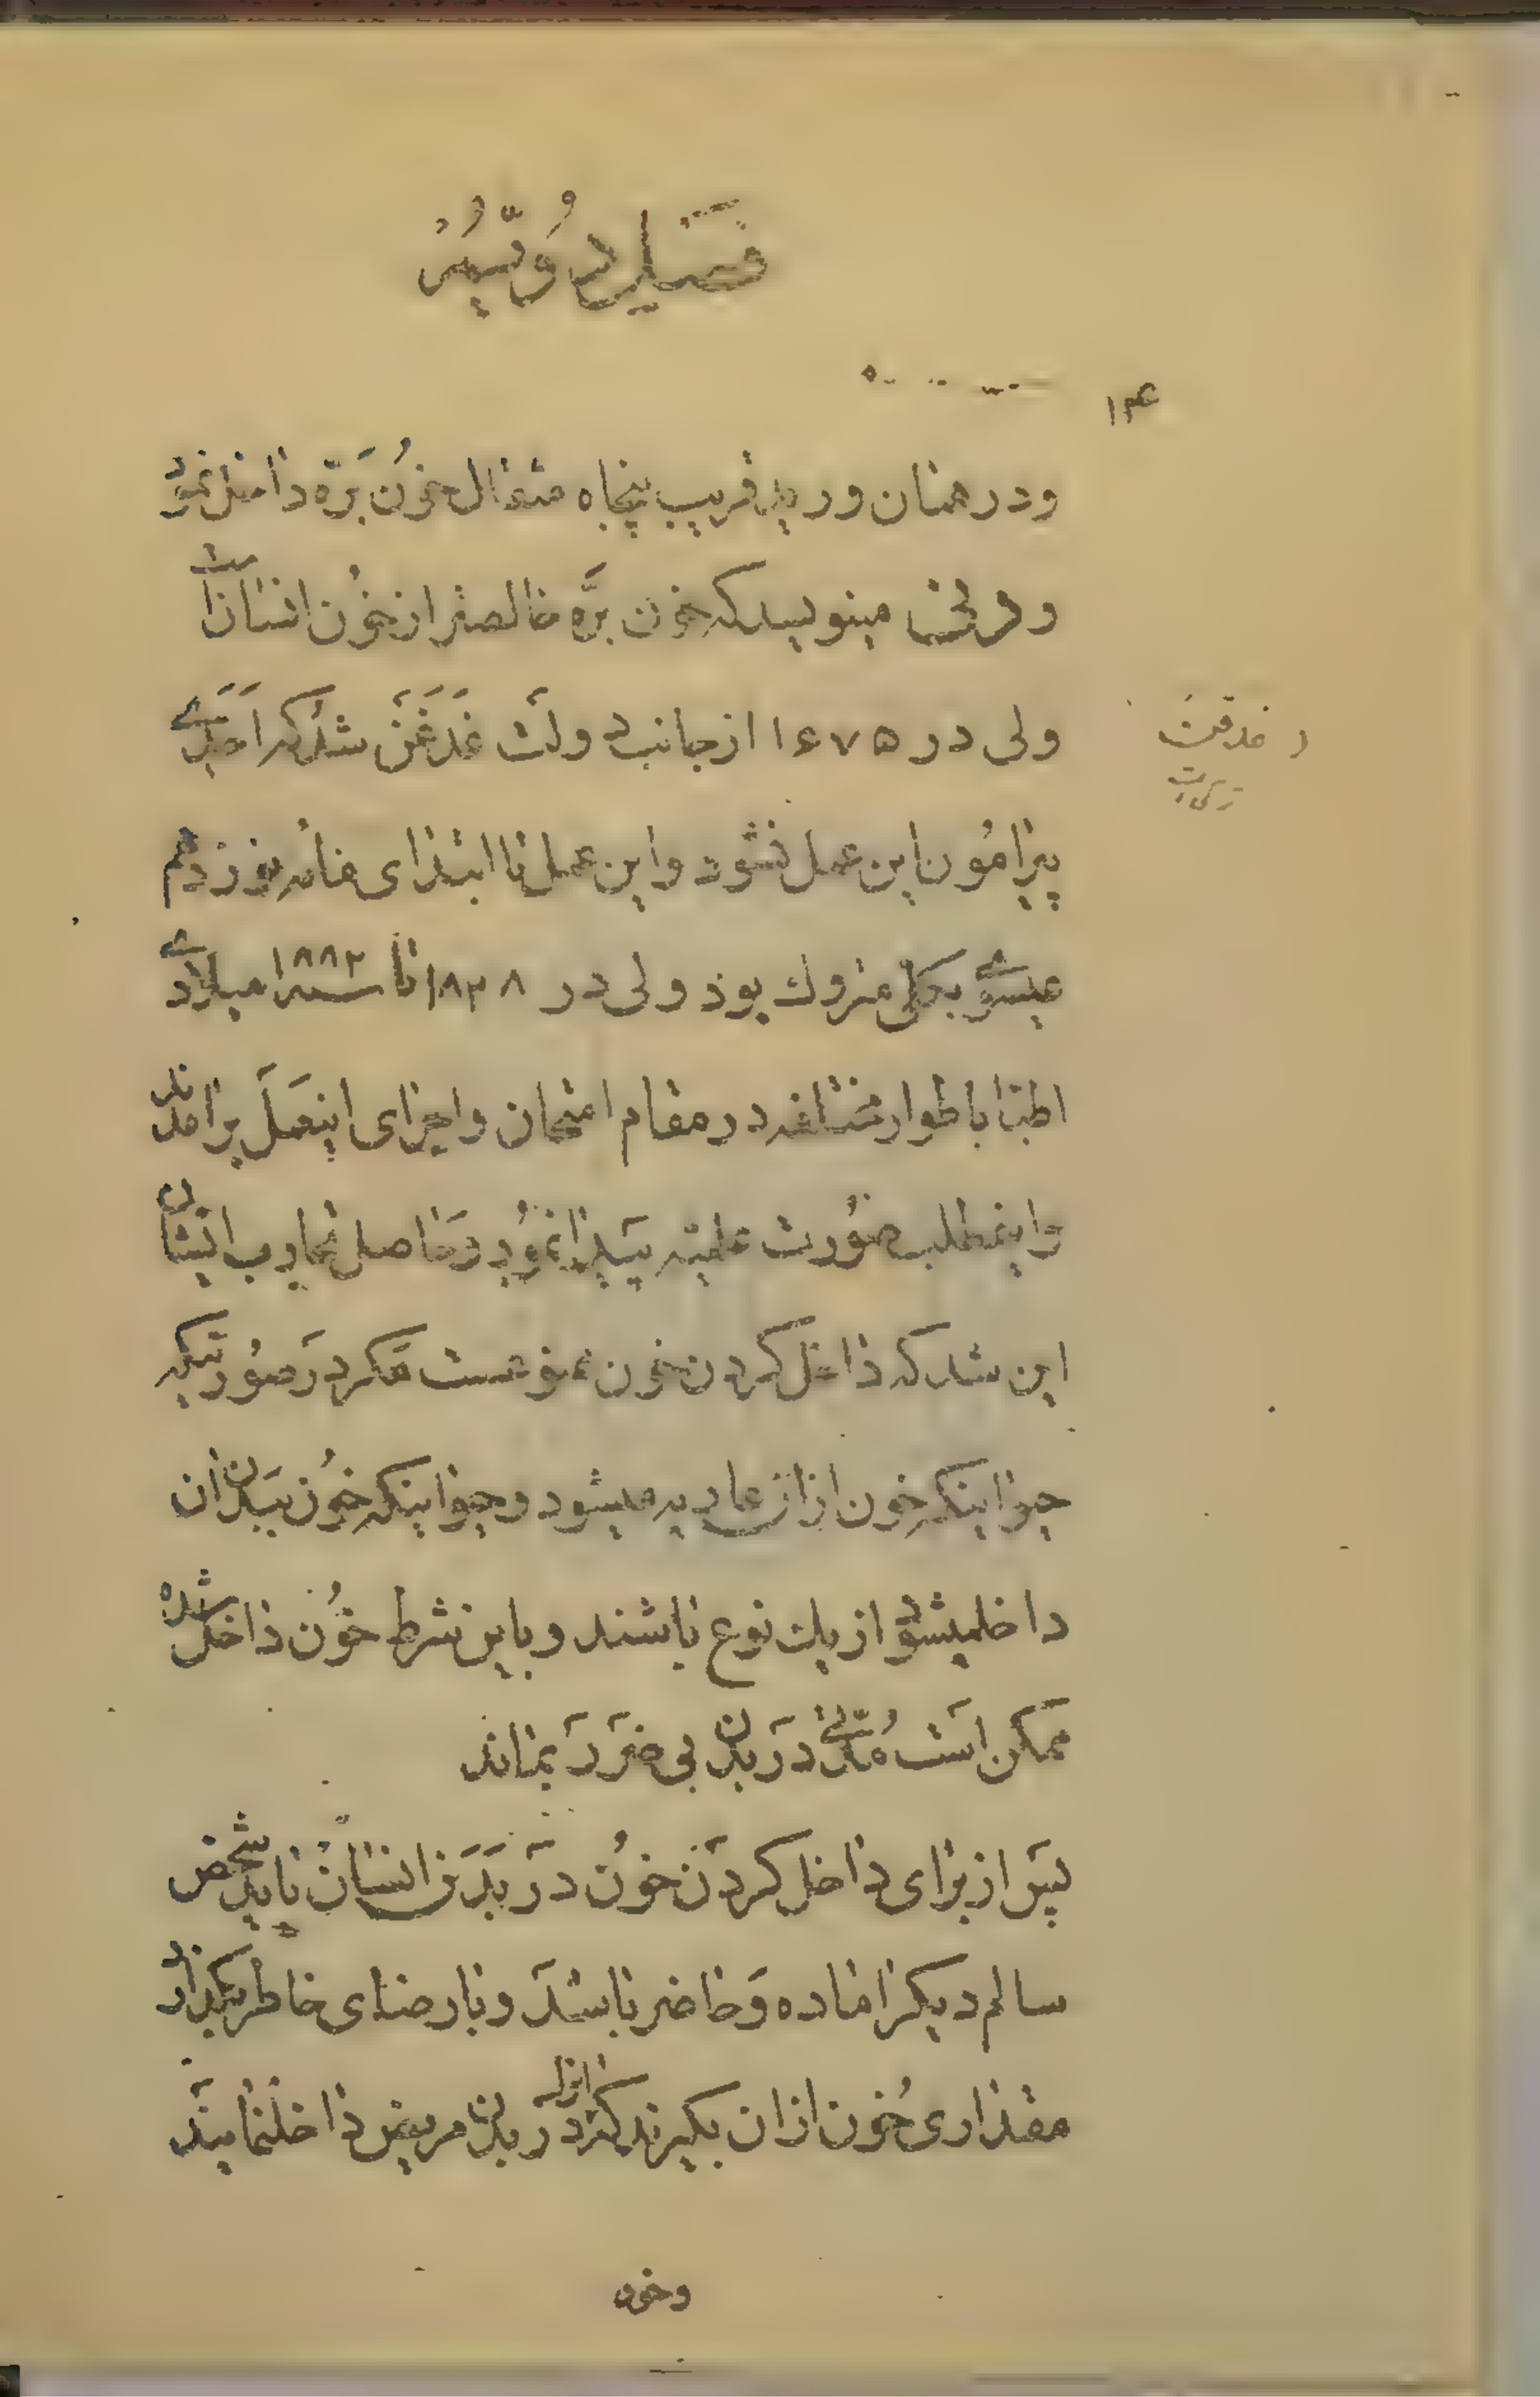 فصل دویّم
۱۳۶
و در همان ورید قریب پنجاه مثقال خُون بَرّه داخل نمود
و دنی مینویسد که خون برَّه خالصتر از خُون انسان است
ولی در ۱۶۷۵ از جانب دولت غَدَغَن شد که اَحَدی
پیرامُون این عمل نشود و این عمل تا ابتدای مائه نوزدهم
عیسوی بکلی متروك بود ولی در ۱۸۲۸ تا سنه ۱۸۸۳ میلادی
اطبا باطوار مختلفه در مقام امتحان و اجرای اینعمَل برامدند
و اینمطلب صُورت علمیّه پیدا نمُود و حاصل تجارب ایشان
این شد که داخل کردن خون ممنوعست مکر در صُورتیکه
حیوانیکه خون از ان عاریه میشود و حیوانیکه خُون ببدن ان
داخلمیشود از یك نوع باشند و باین شرط خُون داخل شده
ممکن است مُدّتی در بدن بی ضرر بماند
پس از برای داخل کردن خُون در بدَن انسان باید شخص
سالم دیکر اماده و حاضر باشد و با رضای خاطر بکذارد
مقداری خُون از ان بکیرند که در بدن مریض داخلنمایند
وخون